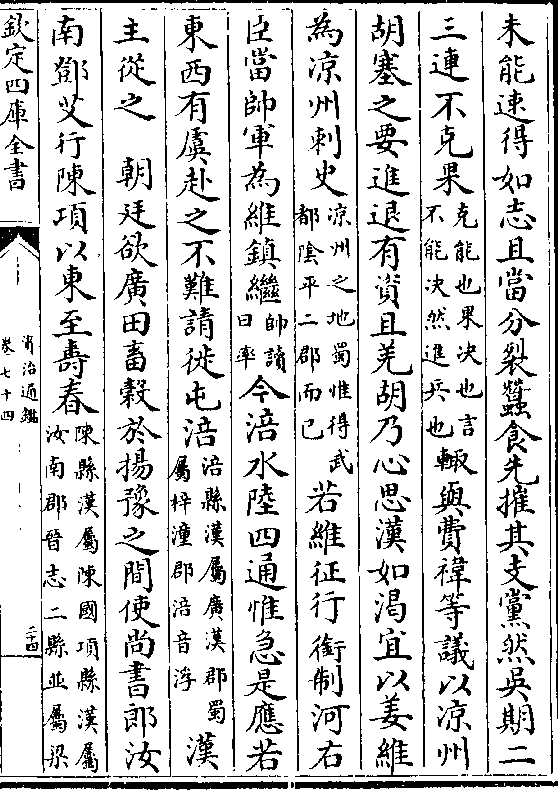 未能速得如志且當分裂蠶食先摧其支黨然吳期二
三連不克果克能也果决也言不能决然進兵也輙與費禕等議以凉州
胡塞之要進退有資且羌胡乃心思漢如渴宜以姜維
為凉州刺史凉州之地蜀惟得武都隂平二郡而已若維征行銜制河右
臣當帥軍為維鎮繼帥讀曰率今涪水陸四通惟急是應若
東西有虞赴之不難請徙屯涪涪縣漢屬廣漢郡蜀屬梓潼郡涪音浮漢
主從之 朝廷欲廣田畜榖於揚豫之間使尚書郎汝
南鄧艾行陳項以東至壽春陳縣漢屬陳國項縣漢屬汝南郡晉志二縣並屬梁
欽定四庫全書
資治通鑑
卷七十四
二十四